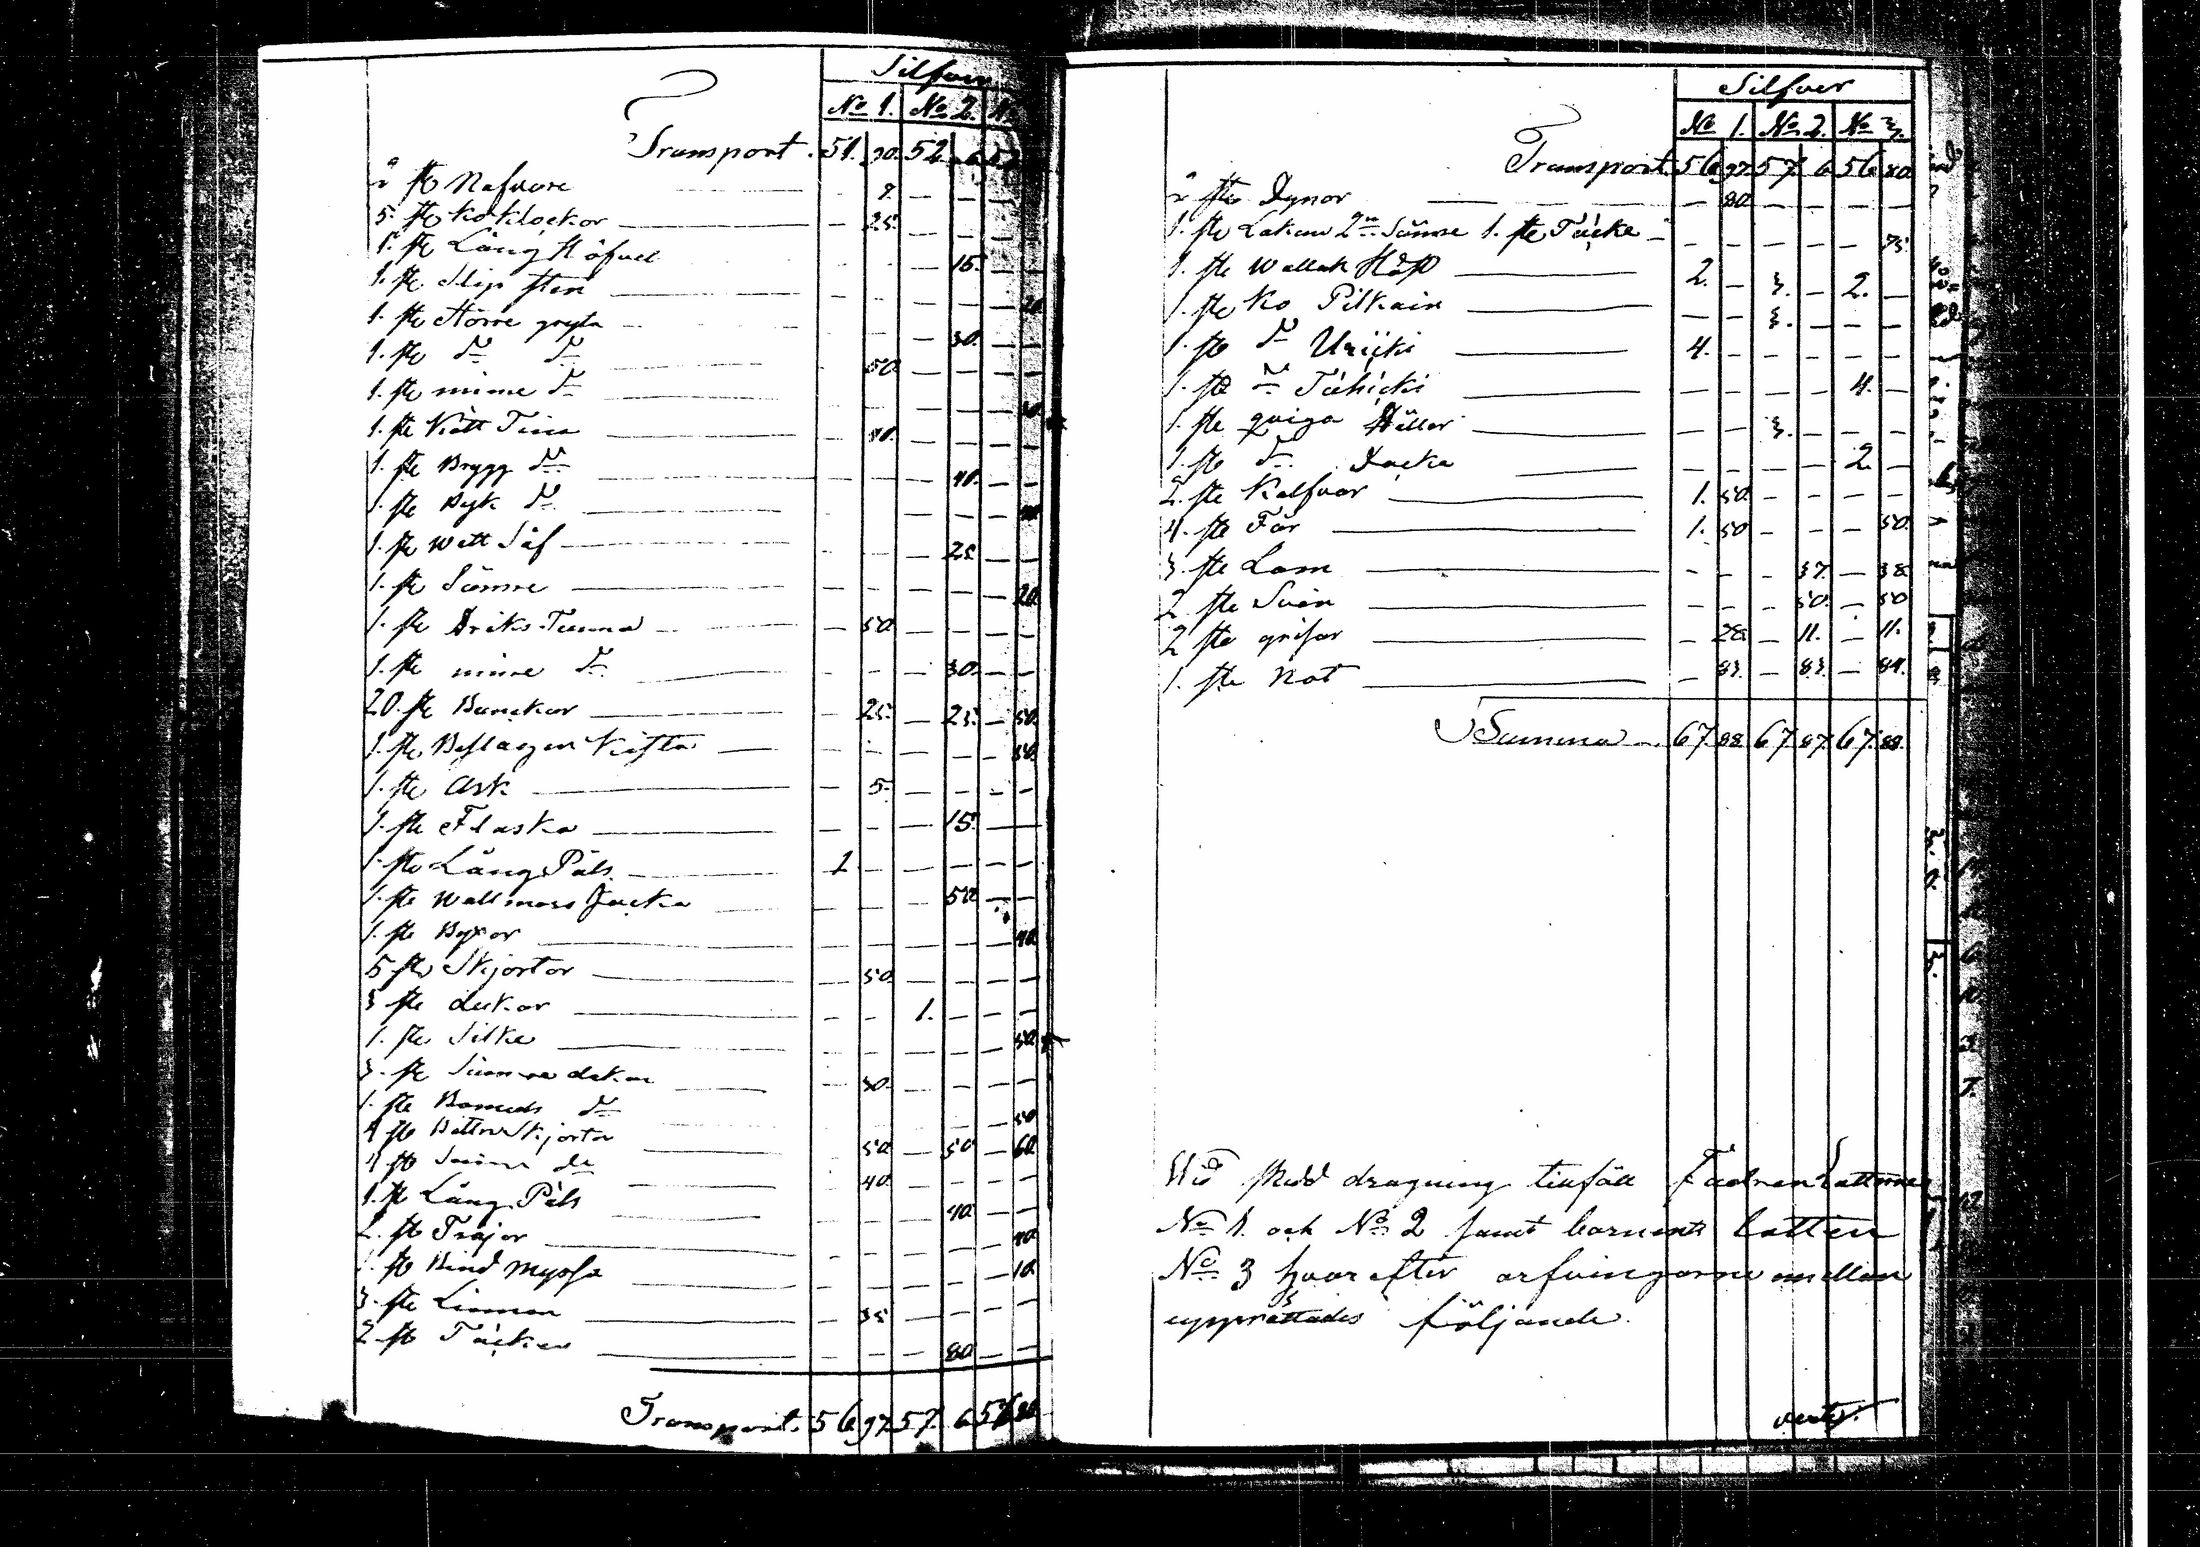 Silfver
No 1. No 2. No
Transport. 51. 90. 52
2 st Nafvare — 7. — — —
5. st Ko klockor — 25. — — —
1. st Lång Höfvel — — — 15. — —
1. st Slip sten — — — — — 20
1. st Större gryta — — — 30. — —
1. st do do — 50. — — — —
1. st minre do — — — — — 30.
1. st Kött Tina — 40. — — — —
1. st Brygg do — — — 40. — —
1. st Byk do — — — — —
1. st Watt Såf — — — 25. — —
1. st Sämre — — — — — 20.
1. st Driks Tunna — 50. — — — —
1. st minre do — — — 30. — —
20. st Bunckar — 25. — 25. — 50.
1. st Beslagen Kista — — — — — 50.
1. st Ask — 5. — — — —
1. st Flaska — — — 15. — —
1. st Lång Päls 1 — — — — —
1. st Wallmars Jacka — — — 50. — —
1. st Byxor — — — — — 40.
5 st Skjortor — 50. — — — —
3 st dukar — — 1. — — —
1. st Silke — — — — — 50.
3. st Sämre dukar — 30. — — — —
1. st Bomuls do — — — — — 50
4 st Bättre Skjortor — 50. — 50 — 60.
4 st Sämre do — 40. — — — —
1. st Lång Päls — — — 40. — —
2. st Tröjor — — — — — 40.
1. st Bind Myssa — — — — — 10.
3. st Linnen — 35 — — — —
2 st Täcken — — — 80. — —
Transport. 56. 97. 57. 6. 56 80
Silfver
No 1. No 2. No 3.
Transport. 56. 97. 57. 6. 56. 80.
2 st Dynor — 80. — — — —
1. st Lakan 2ne Sämre 1. st Täcke — — — — — 75.
1. st Wallak Häst 2. — 3. — 2. —
1. st Ko Pilkain — — 3. — — —
1. st do 4. — — — — —
1. st do Tähicki — — — — 4. —
1. st qviga — — 3. — — —
1. st do Docka — — — — 2. —
2. st Kalfvar 1. 50. — — — —
4. st Får 1. 50 — — — 50.
3 st Lam — — — 37. — 38.
2 st Svin — — — 50. — 50
2 st grisar — 28. — 11. — 11.
1. st Not — 83. — 83. — 84.
Summa 67. 88. 67. 87. 67. 89.
Wid dragning tillföll Lotterne
No 1. och No 2 samt barnens lotten
No 3 hvarefter arfvingarne emellan
upprättades följande.
vertis.